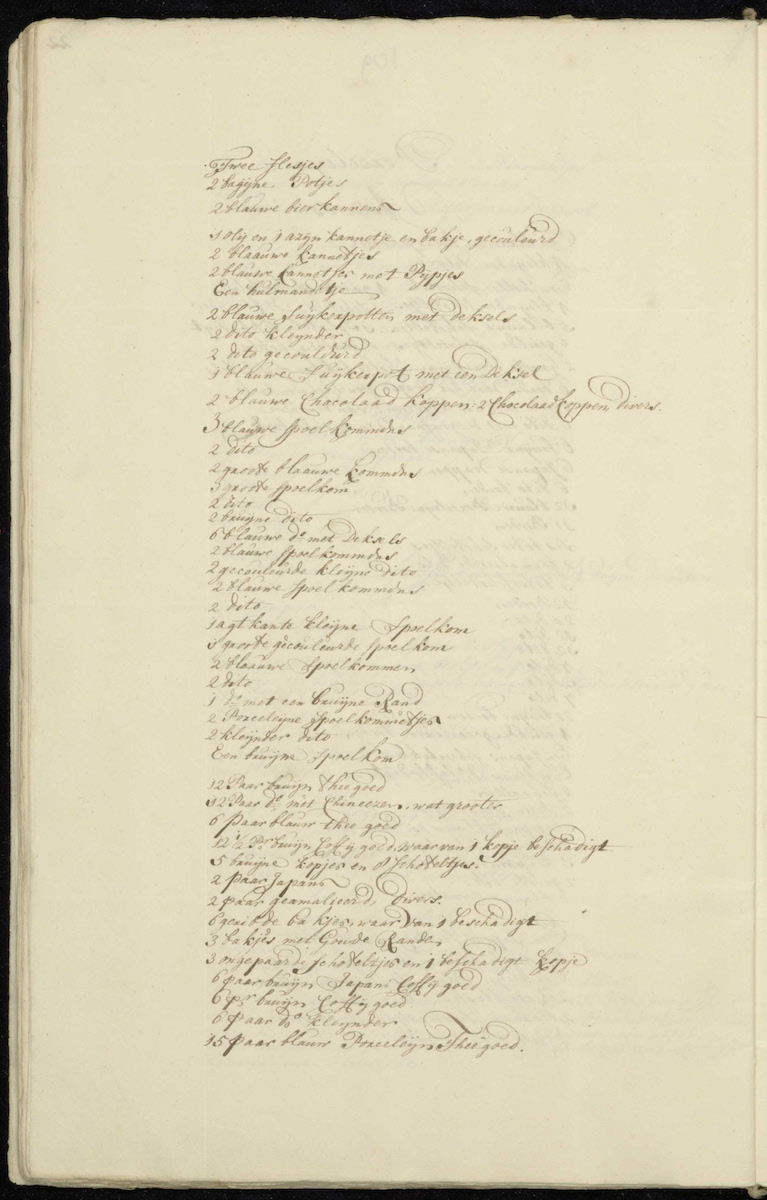 Twee flesjes
2 bagijne Potjes
2 blauwe bierkannens
1 olij en 1 azijn kannetje en bakje, gecouleurd
2 blaauwe kannetjes
2 blauwe kannetjes met Pypjes
Een hulmandetje
2 blauwe Suijkerpotten met deksels
2 dito kleynder
2 dito gecouleurd
1 blauwe Suijkerpot met een Deksel
2 blauwe Chocolaad koppen: 2 Chocolaad koppen divers.
3 blauwe spoelkommens
2 dito
2 groote blaauwe kommens
3 groote spoelkom
2 dito
2 bruijne dito
6 blauwe do. met Deksels
2 blauwe spoelkommens
2 gecouleurde kleijne dito
2 blauwe spoelkommens
2 dito
1 agtkante kleijne Spoelkom
3 groote gecouleurde spoelkom
2 blaauwe Spoelkommen
2 dito
1 do. met een bruijne Rand
2 Porceleijne Spoelkommetjes
2 kleijnder dito
Een bruijne Spoelkom
12 Paar bruijn theegoed
12 Paar do. met Chineezen, wat grooter
6 Paar blauw thee goed
12 1/2 Pr. bruijn Coffij goed, waarvan 1 kopje beschadigt
5 bruijne kopjes en 8 schoteltjes.
2 Paar Japans
2 paar geamalieerd, divers.
6 geribde bakjes, waar van 1 beschadigt
3 bakjes met Goude Randen
3 ongepaarde schoteltjes en 1 beschadigt kopje
6 paar bruijn Japans Coffij goed
6 pr. bruijn Coffij goed
6 Paar do. kleijnder
15 Paar blauw Porceleijn Theegoed.